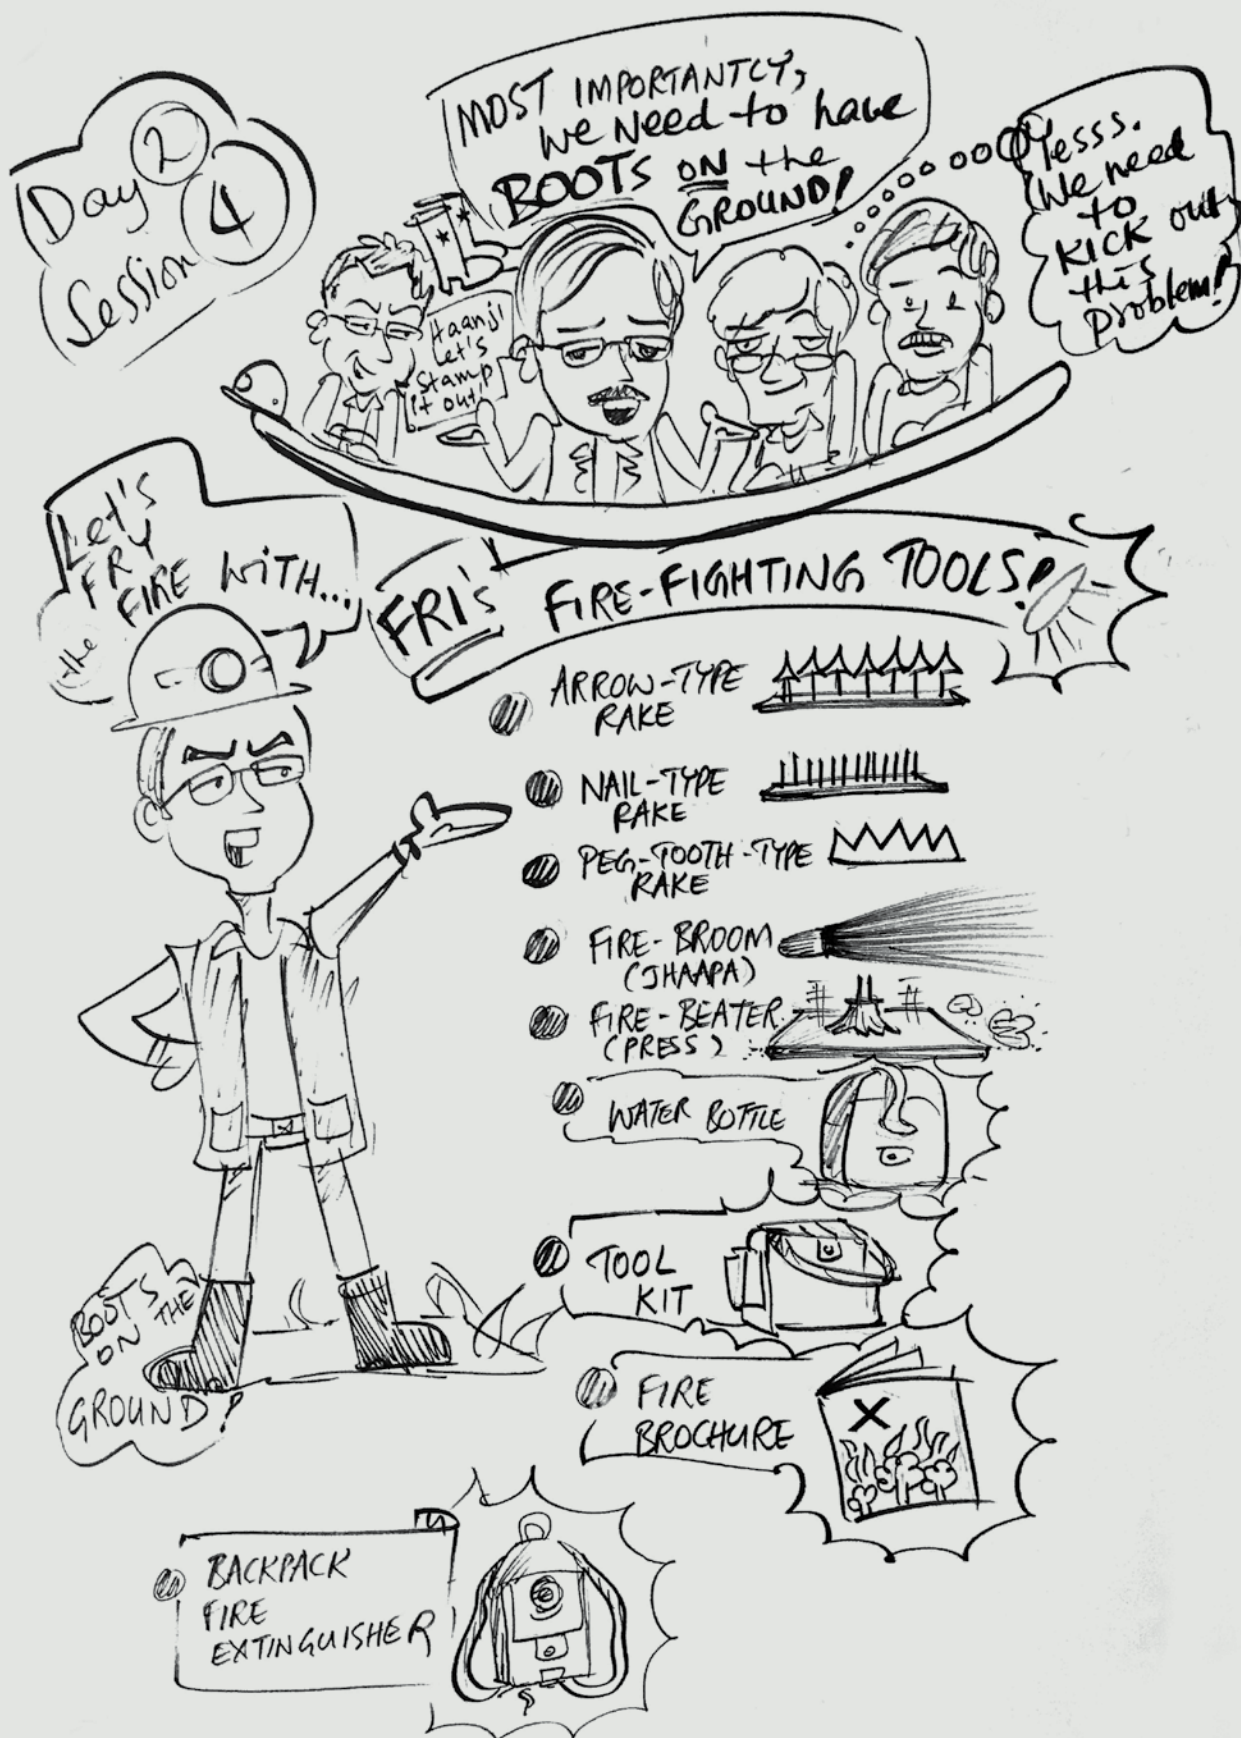 Day 2
Session 4
MOST IMPORTANTLY,
we need to have
BOOTS ON the
GROUND!
Yesss.
We need
to
KICK out
this
problem!
Haanji!
Let's
stamp
it out!
Let's
FRY
the FIRE WITH...
FRI's FIRE-FIGHTING TOOLS!
ARROW-TYPE
RAKE
NAIL-TYPE
RAKE
PEG-TOOTH-TYPE
RAKE
FIRE-BROOM
(JHAAPA)
FIRE-BEATER
(PRESS)
WATER BOTTLE
TOOL
KIT
BOOTS
ON THE
GROUND!
FIRE
BROCHURE
BACKPACK
FIRE
EXTINGUISHER